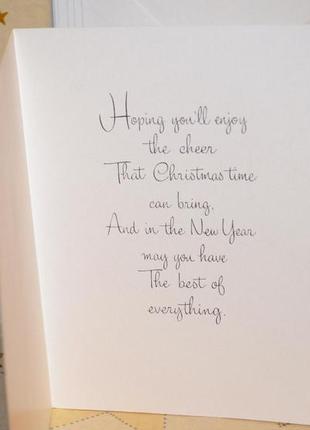 Hoping you'll enjoy
the cheer
That Christmas time
can bring,
And in the New Year
may you have
The best of
everything.